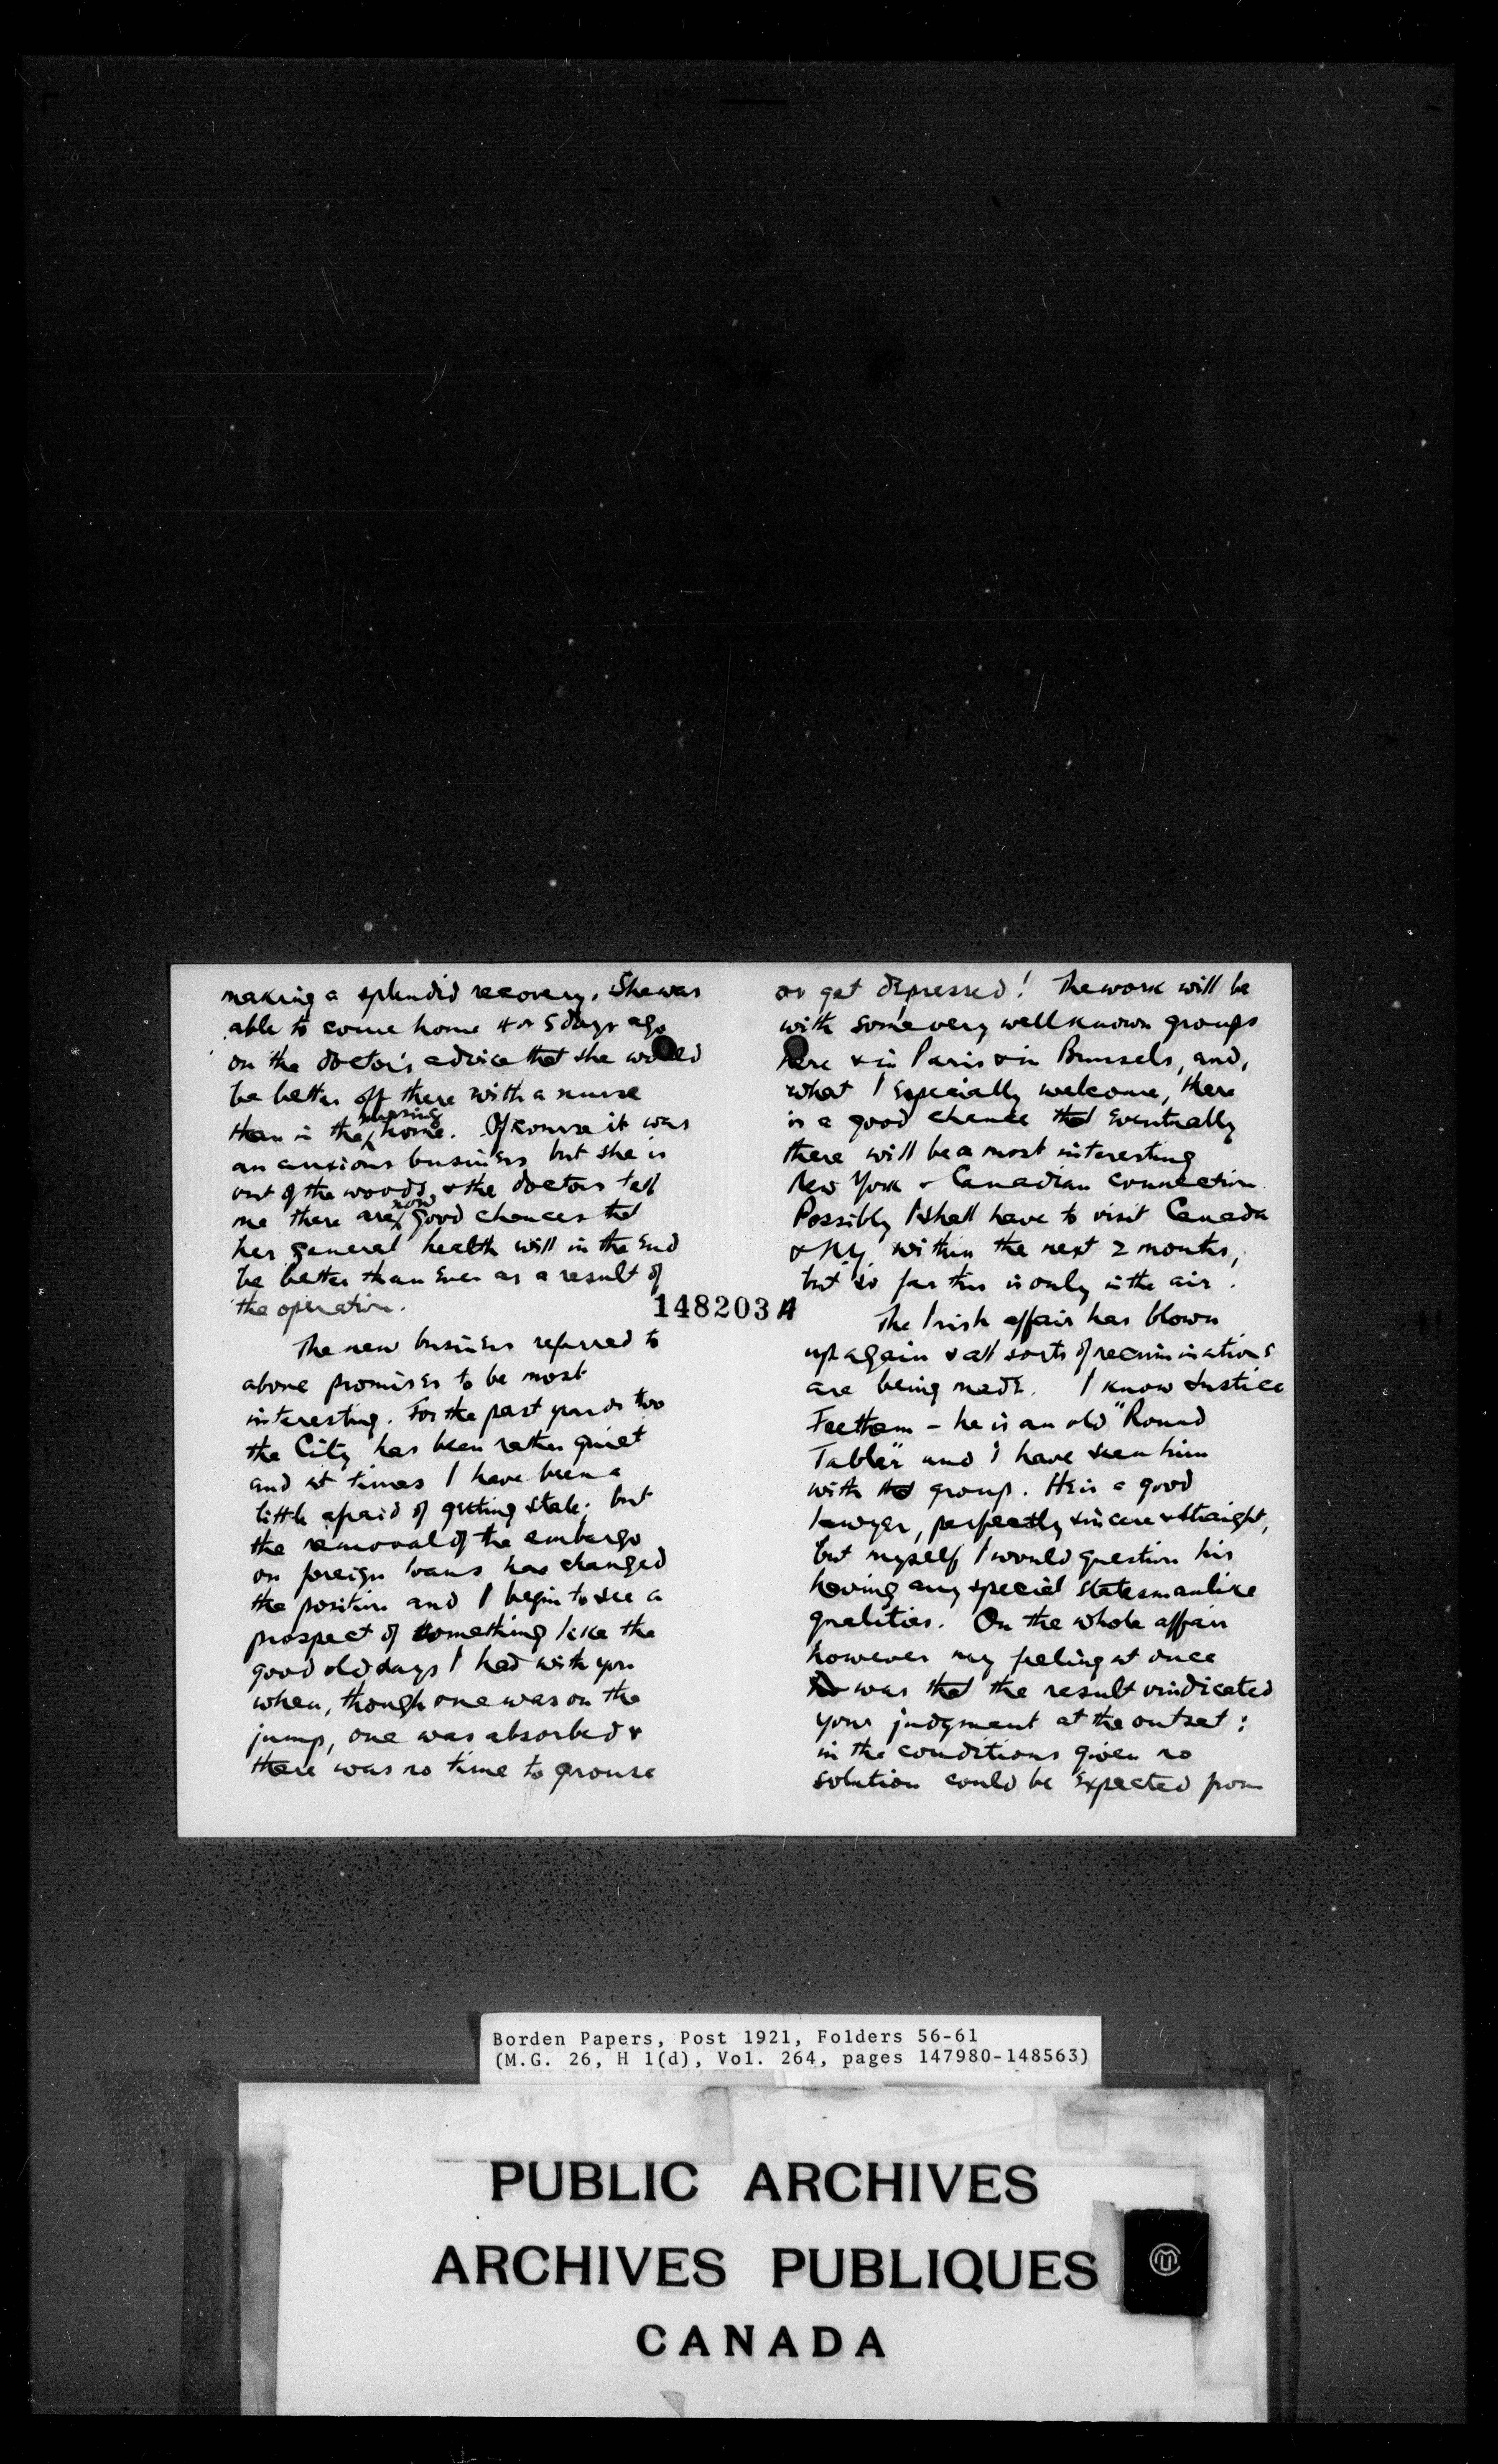 making a splendid recovery. She was
able to come home 4 or 5 days ago
on the doctor's advice that she would
be better off there with a nurse
than in the nursing home. Of course it was
an anxious business but she is
out of the woods, & the doctors tell
me there are now good chances that
her general health will in the end
be better than ever as a result of
the operation.
The new business referred to
above promises to be most
interesting. For the past year or two
the City has been rather quiet
and at times I have been a
little afraid of getting stale; but
the removal of the embargo
on foreign loans has changed
the position and I begin to see a
prospect of something like the
good old days I had with you
when, though one was on the
jump, one was absorbed &
there was no time to grouse
148203 A
or get depressed! The work will be
with some very well known groups
here & in Paris & in Brussels, and,
what I especially welcome, there
is a good chance that eventually
there will be a most interesting
New York - Canadian connection.
Possibly I shall have to visit Canada
& N.Y. within the next 2 months,
but so far this is only in the air.
The Irish affair has blown
up again & all sorts of recriminations
are being made. I know Justice
Feetham - he is an old "Round
Tabler" and I have seen him
with that group. He is a good
lawyer, perfectly sincere & straight,
but myself I would question his
having any special statesmanlike
qualities. On the whole affair
however my feeling at once
was that the result vindicated
your judgment at the outset:
in the conditions given no
solution could be expected from
Borden Papers, Post 1921, Folders 56-61
(M.G. 26, H 1(d), Vol. 264, pages 147980-148563)
PUBLIC ARCHIVES
ARCHIVES PUBLIQUES
CANADA